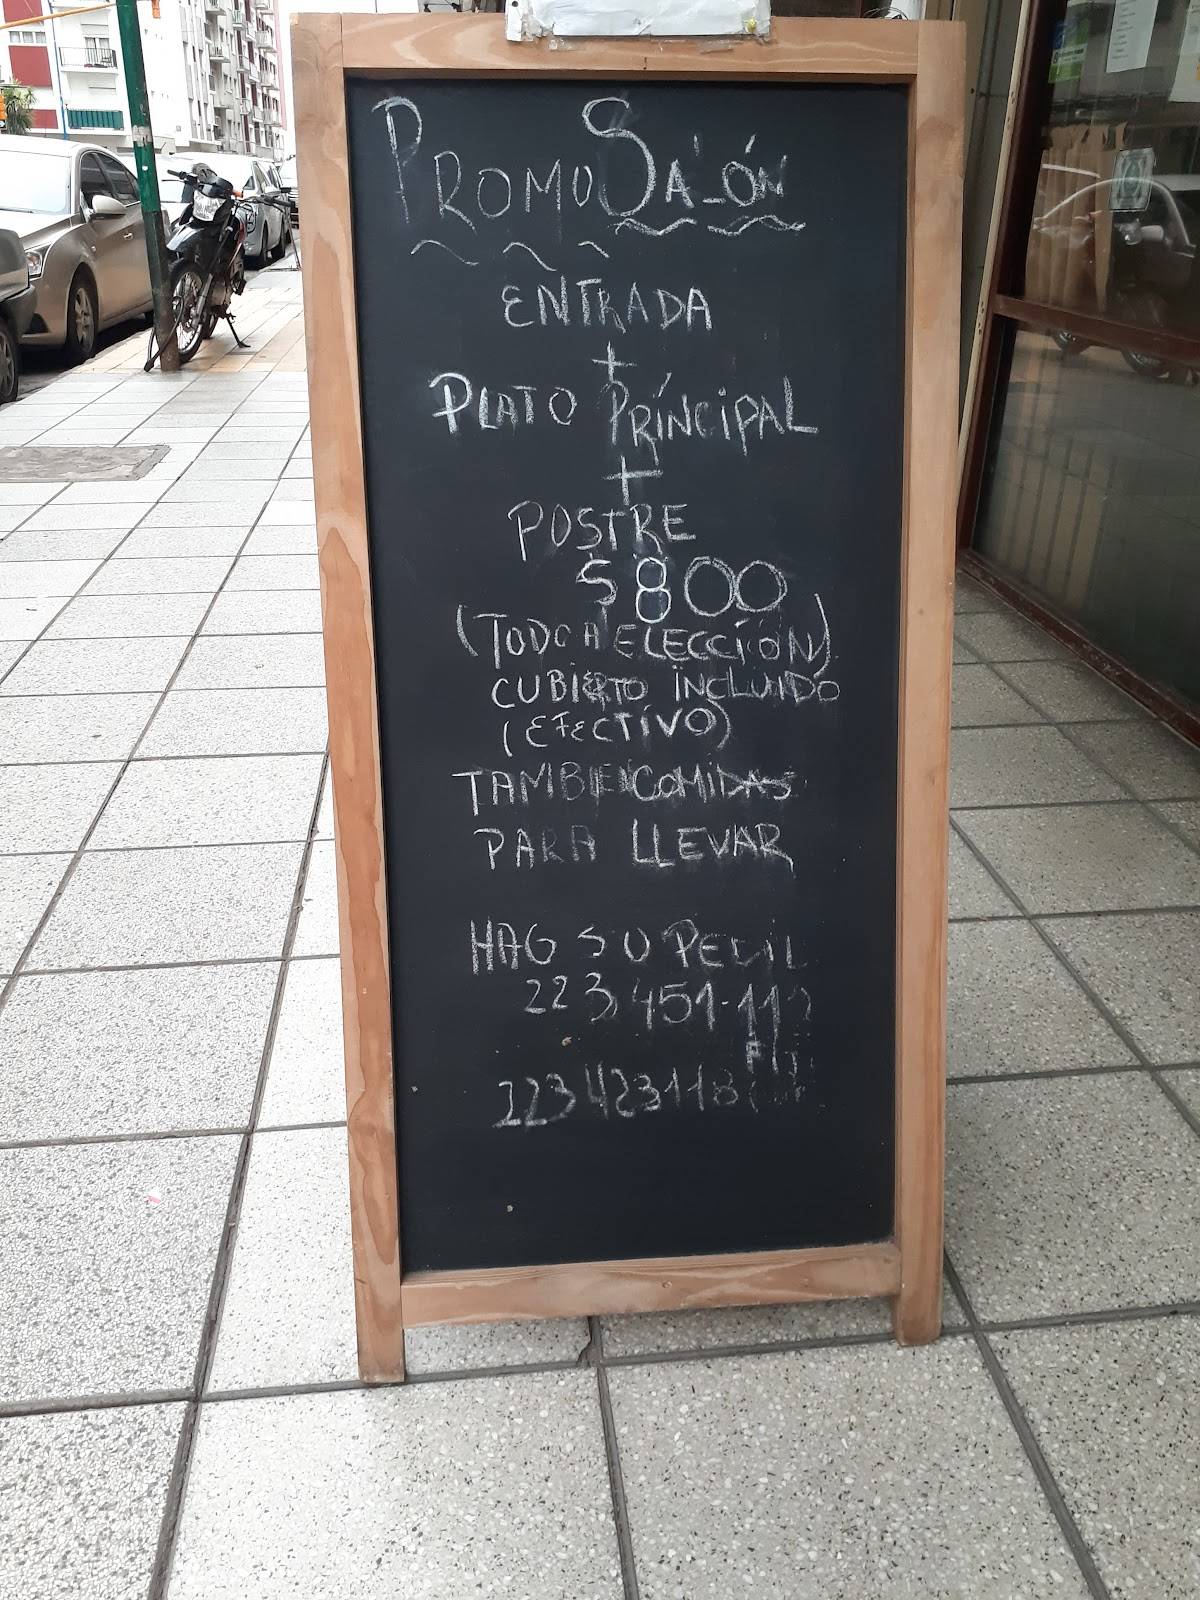 PROMO SALÓN
ENTRADA
+
PLATO PRÍNCIPAL
+
POSTRE
$800
(TODO A ELECCIÓN)
CUBIERTO INCLUIDO
(EFECTIVO)
TAMBIEN COMIDAS
PARA LLEVAR
HAG SU PEDI
223 451-112
223 423118